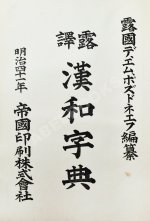 露國デエムポズドネエフ編纂
露譯 漢和字典
明治四十一年
帝國印刷株式會社